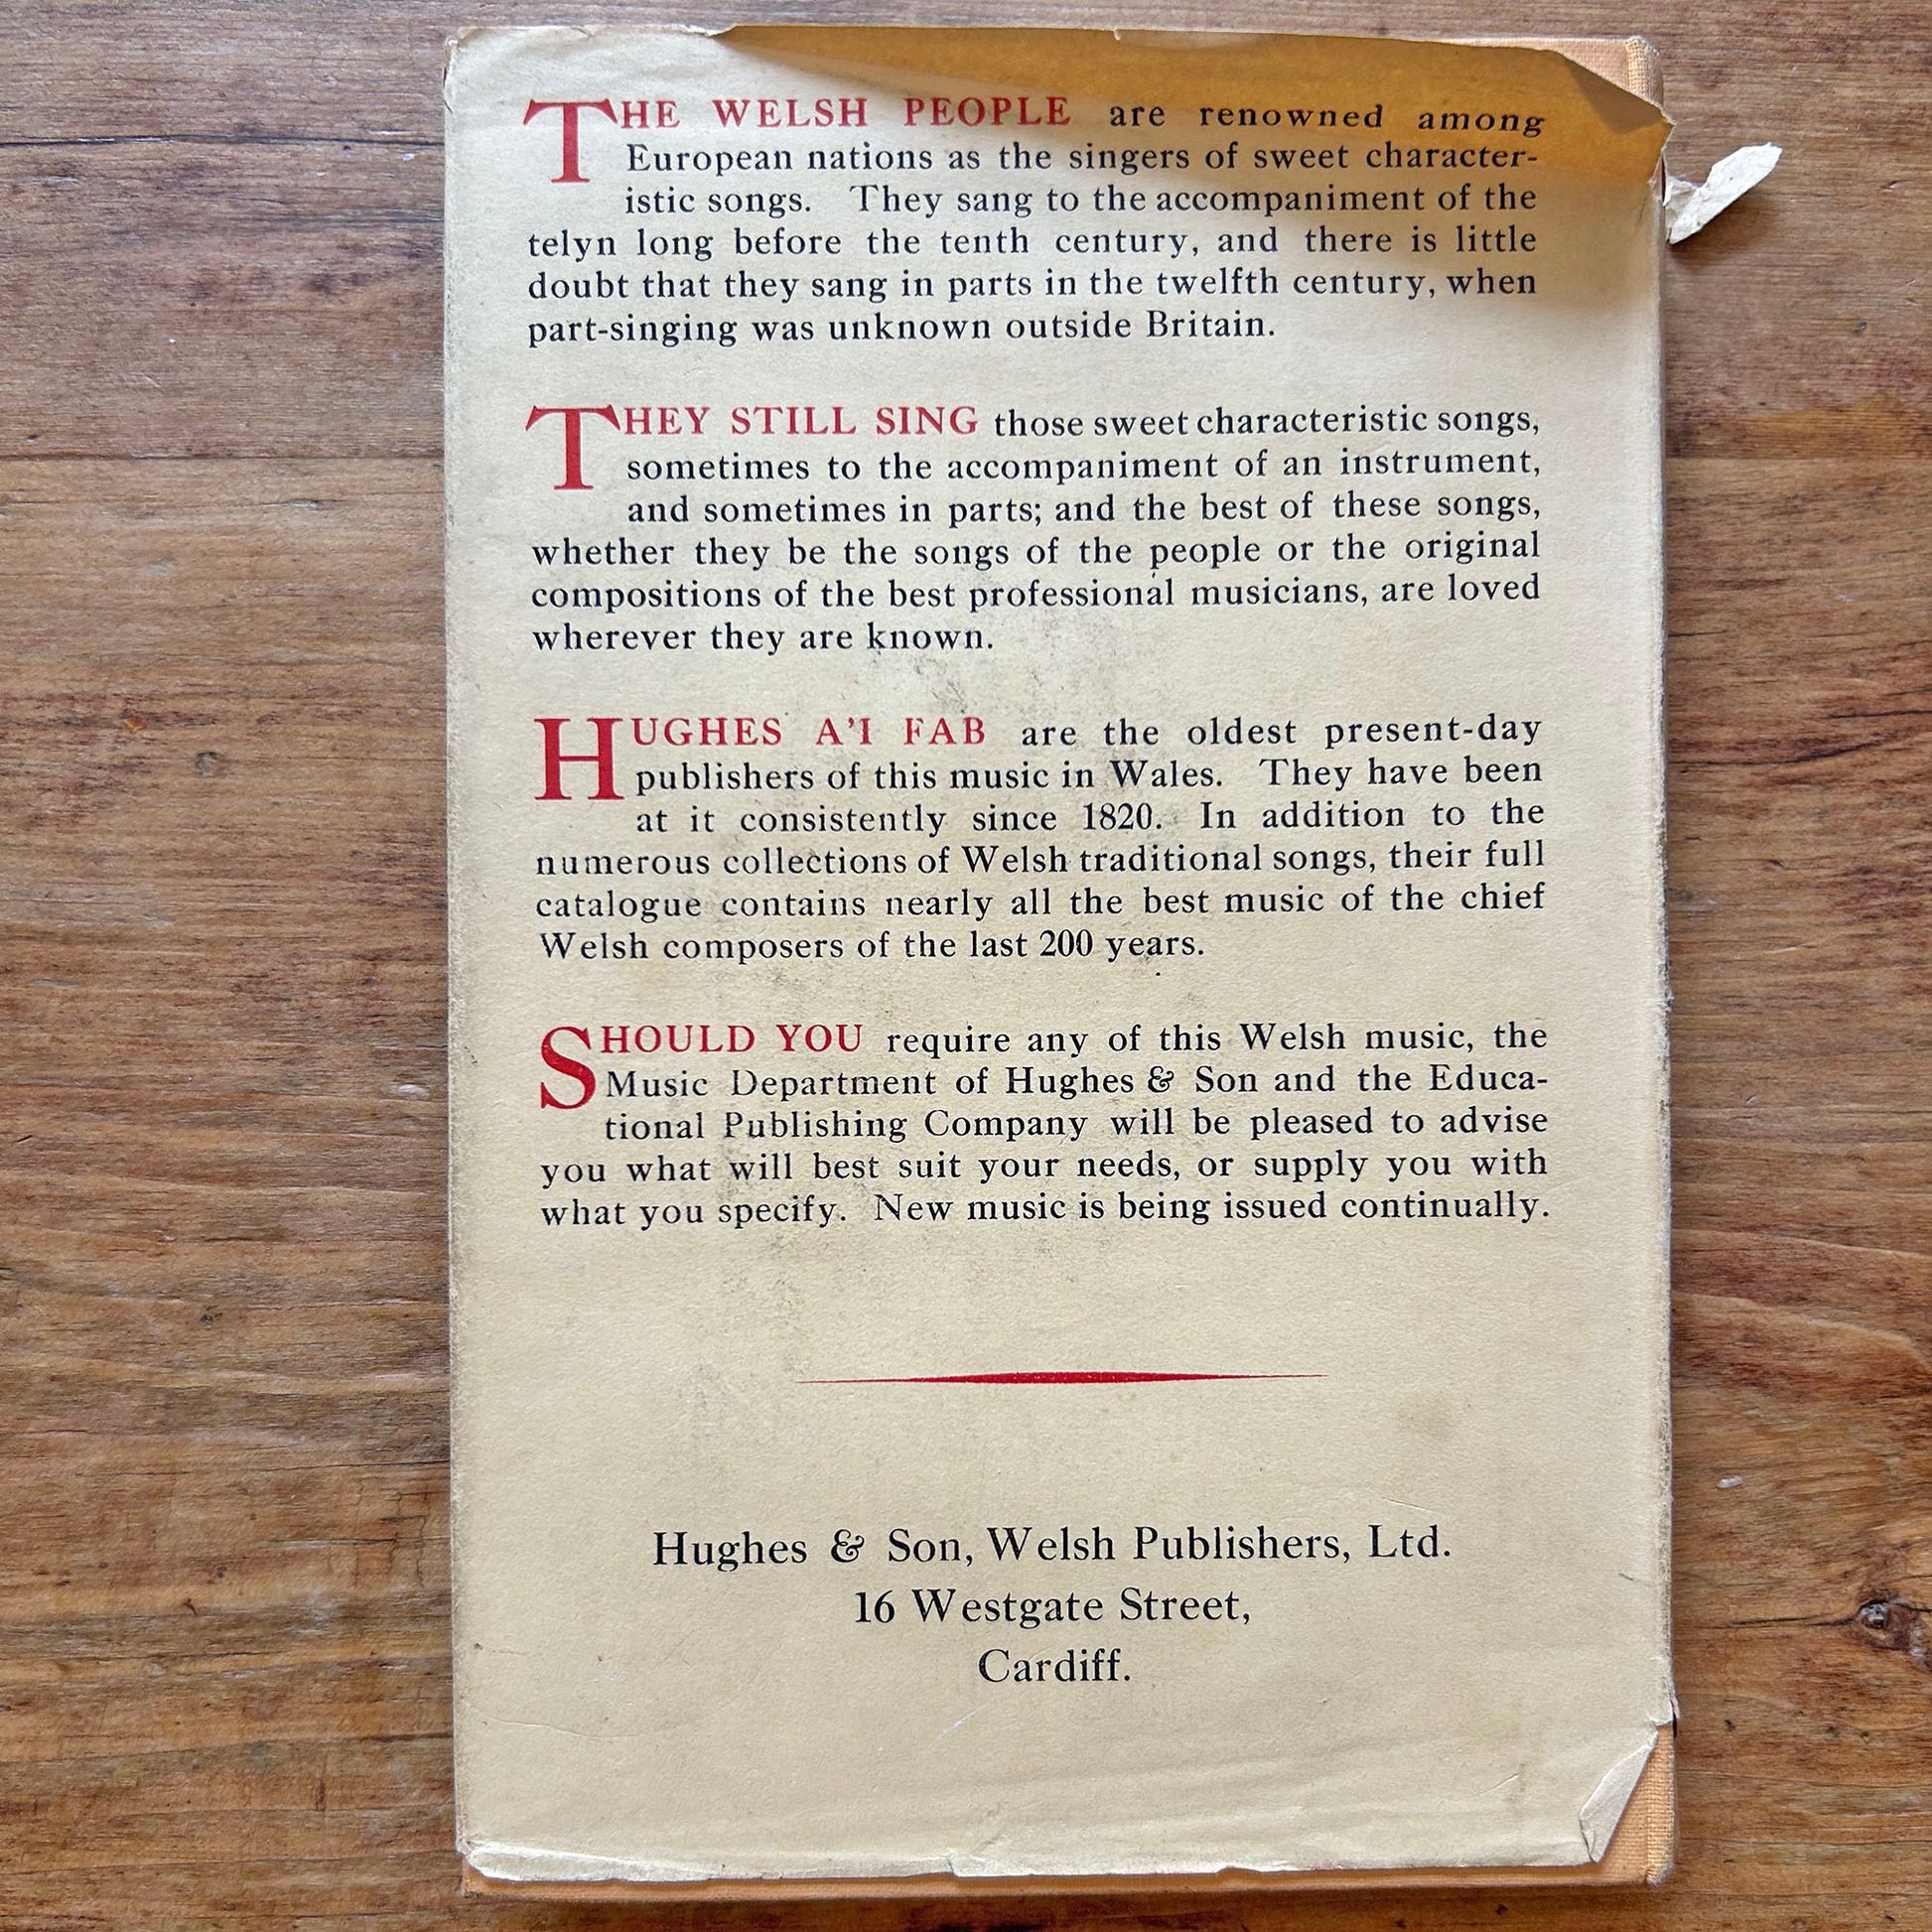 THE WELSH PEOPLE are renowned among
European nations as the singers of sweet character-
istic songs. They sang to the accompaniment of the
telyn long before the tenth century, and there is little
doubt that they sang in parts in the twelfth century, when
part-singing was unknown outside Britain.
THEY STILL SING those sweet characteristic songs,
sometimes to the accompaniment of an instrument,
and sometimes in parts; and the best of these songs,
whether they be the songs of the people or the original
compositions of the best professional musicians, are loved
wherever they are known.
HUGHES A'I FAB are the oldest present-day
publishers of this music in Wales. They have been
at it consistently since 1820. In addition to the
numerous collections of Welsh traditional songs, their full
catalogue contains nearly all the best music of the chief
Welsh composers of the last 200 years.
SHOULD YOU require any of this Welsh music, the
Music Department of Hughes & Son and the Educa-
tional Publishing Company will be pleased to advise
you what will best suit your needs, or supply you with
what you specify. New music is being issued continually.
Hughes & Son, Welsh Publishers, Ltd.
16 Westgate Street,
Cardiff.